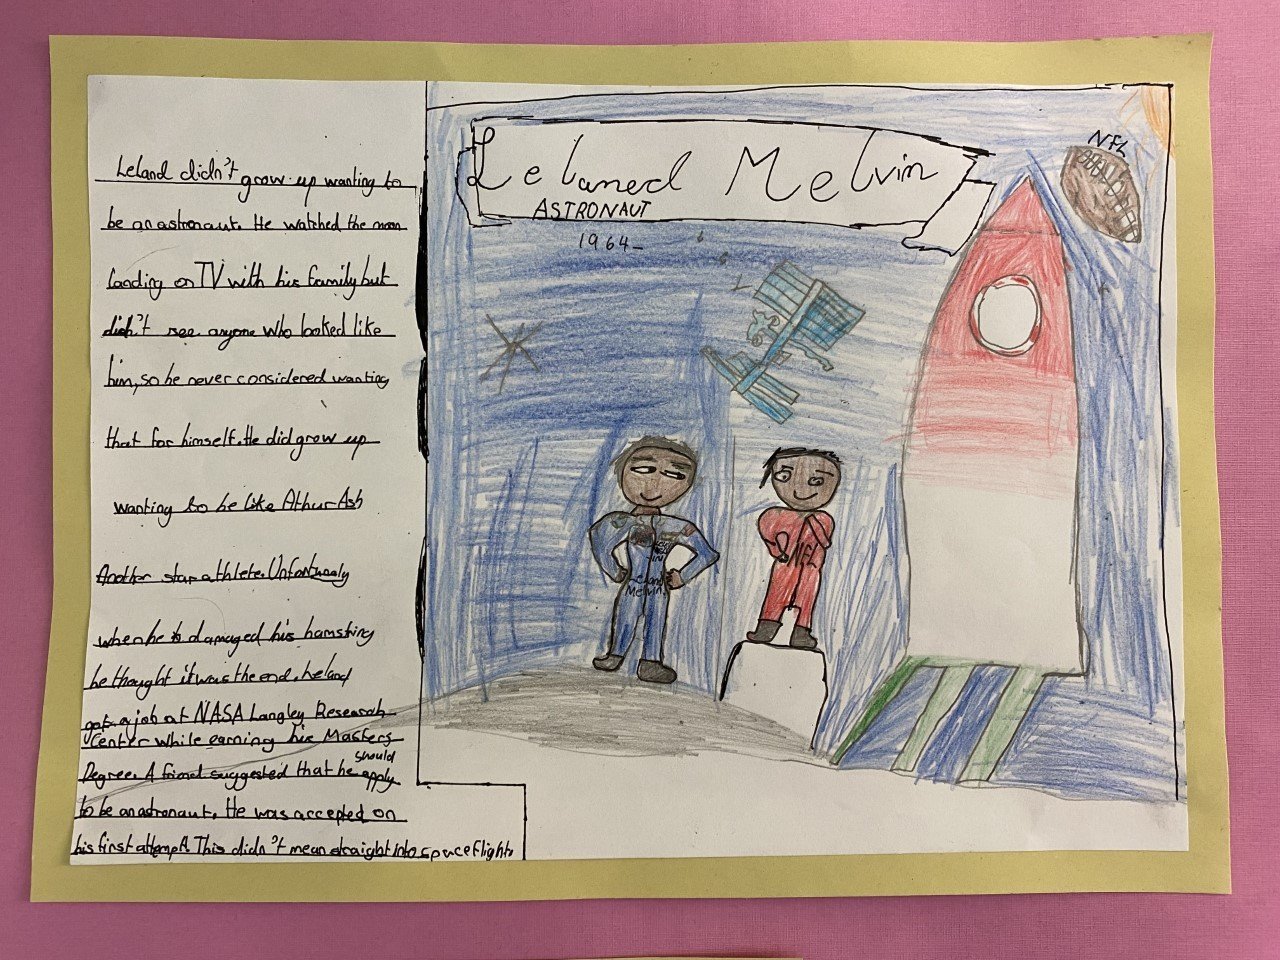 Leland didn't grow up wanting to
be an astronaut. He watched the moon
landing on TV with his family but
didn't see anyone who looked like
him, so he never considered wanting
that for himself. He did grow up
wanting to be like Athur Ash
Another star athlete. Unfortunaly
when he damaged his hamstring
he thought it was the end. Leland
got a job at NASA Langley Research
Center while earning his Masters
Degree. A friend suggested that he should apply
to be an astronaut. He was accepted on
his first attempt. This didn't mean straight into spaceflight
Lelaned Melvin
ASTRONAUT
1964-
NFL
Leland
Melvin
NFL